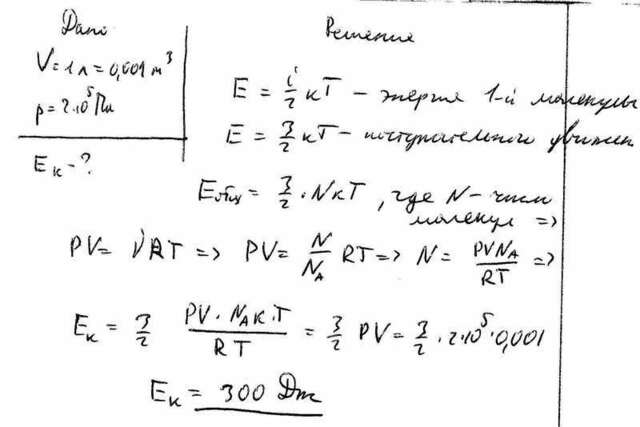 Дано
V = 1 л = 0,001 м³
p = 2·10⁵ Па
Eк - ?
Решение
E = i/2 кТ — энергия 1-й молекулы
E = 3/2 кТ — поступательного движен
Eобщ = 3/2 · NкТ, где N — число
молекул =>
PV = νRT => PV = N/N_A RT => N = PVN_A/RT =>
Eк = 3/2 PV·N_Aк·T/RT = 3/2 PV = 3/2 · 2·10⁵·0,001
Eк = 300 Дж